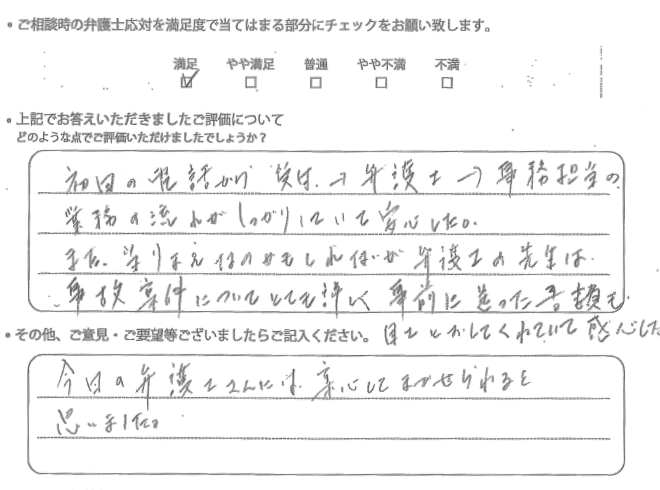 • ご相談時の弁護士応対を満足度で当てはまる部分にチェックをお願い致します。
満足 やや満足 普通 やや不満 不満
• 上記でお答えいただきましたご評価について
どのような点でご評価いただけましたでしょうか？
初回の電話から 受付 → 弁護士 → 事務担当の
業務の流れがしっかりしていて安心した。
また、当りまえなのかもしれないが 弁護士の先生は
事故案件についてとても詳しく 事前に送った書類も
• その他、ご意見・ご要望等ございましたらご記入ください。
目をとおしてくれていて感心した
今回の弁護士さんには、安心してまかせられると
思いました。